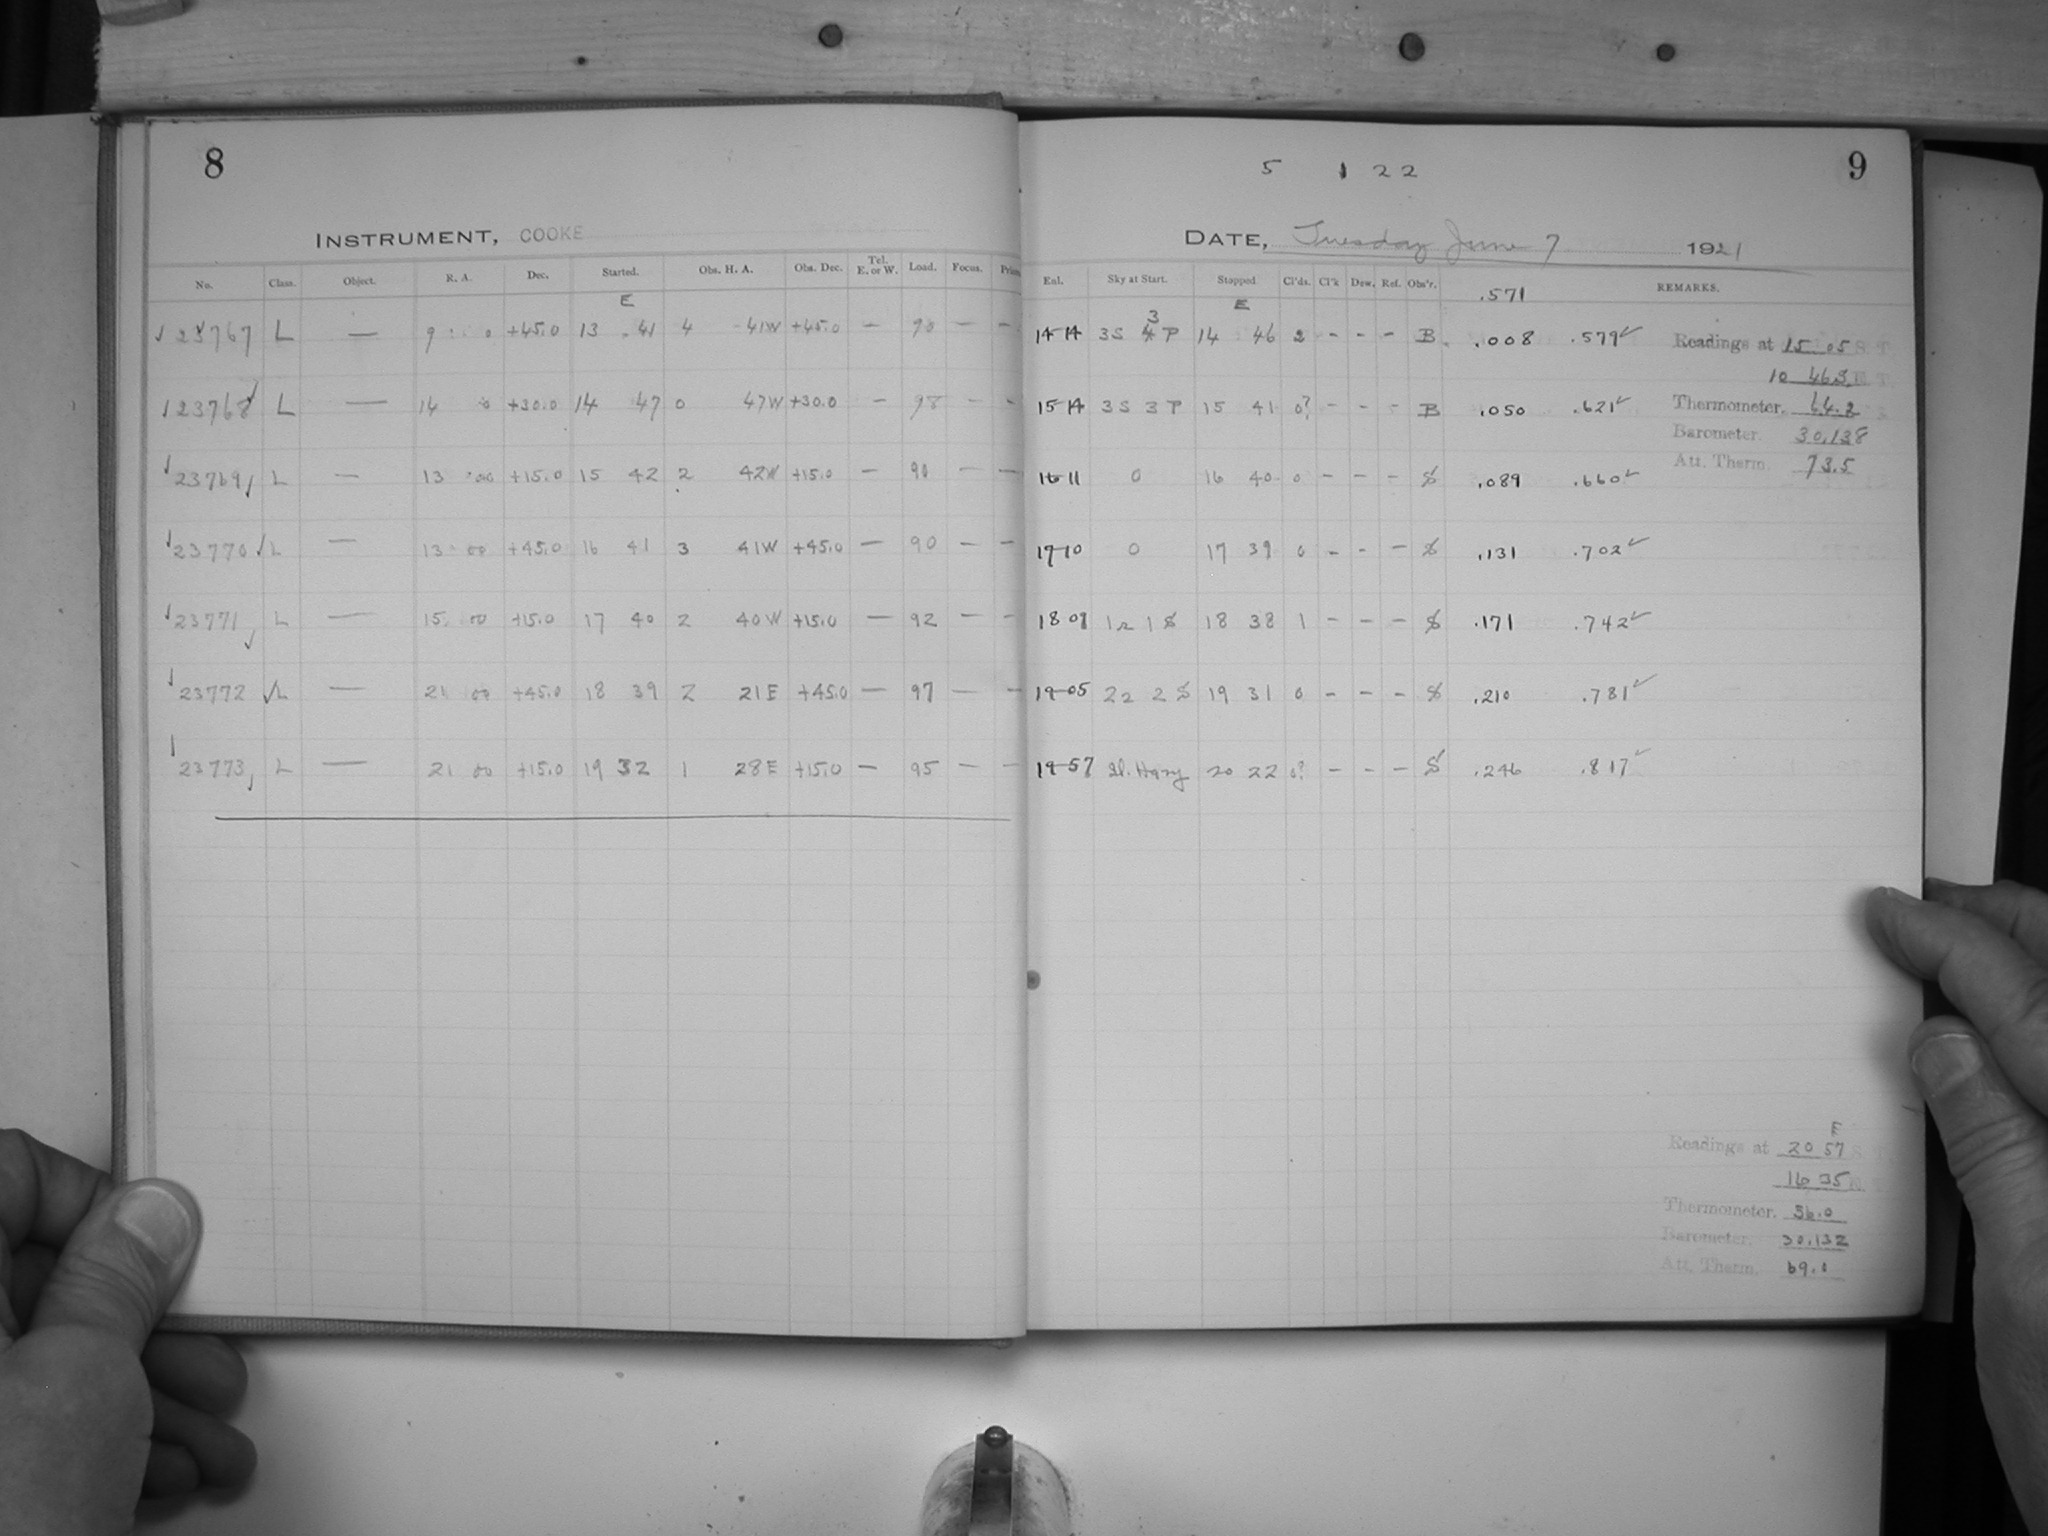 8
INSTRUMENT, COOKE
No. Class. Object. R. A. Dec. Started. Obs. H. A. Obs. Dec. Tel. E. or W. Load. Focus.
E
23767 L — 9 0 +45.0 13 41 4 41W +45.0 — 90 — —
23768 L — 14 0 +30.0 14 47 0 47W +30.0 — 98 — —
23769 L — 13 00 +15.0 15 42 2 42W +15.0 — 90 — —
23770 L — 13 00 +45.0 16 41 3 41W +45.0 — 90 — —
23771 L — 15 00 +15.0 17 40 2 40W +15.0 — 92 — —
23772 L — 21 00 +45.0 18 39 2 21E +45.0 — 97 — —
23773 L — 21 00 +15.0 19 32 1 28E +15.0 — 95 — —
9
5 1 22
DATE, Tuesday June 7 1921
Enl. Sky at Start. Stopped Cl'ds. Cl'k Dew. Ref. Obs'r. .571 REMARKS.
3 E
14 14 3S 4 P 14 46 2 - - - B .008 .579
15 14 3S 3P 15 41 0? - - - B .050 .621
16 11 0 16 40 0 - - - S .089 .660
17 10 0 17 39 0 - - - S .131 .702
18 09 12 1S 18 38 1 - - - S .171 .742
19 05 22 2S 19 31 0 - - - S .210 .781
19 57 Sl. Hazy 20 22 0? - - - S .246 .817
Readings at 15 05 S. T.
10 46
Thermometer. 64.2
Barometer. 30.138
Att. Therm. 73.5
E
Readings at 20 57 S. T.
16 35
Thermometer. 56.0
Barometer. 30.132
Att. Therm. 69.1